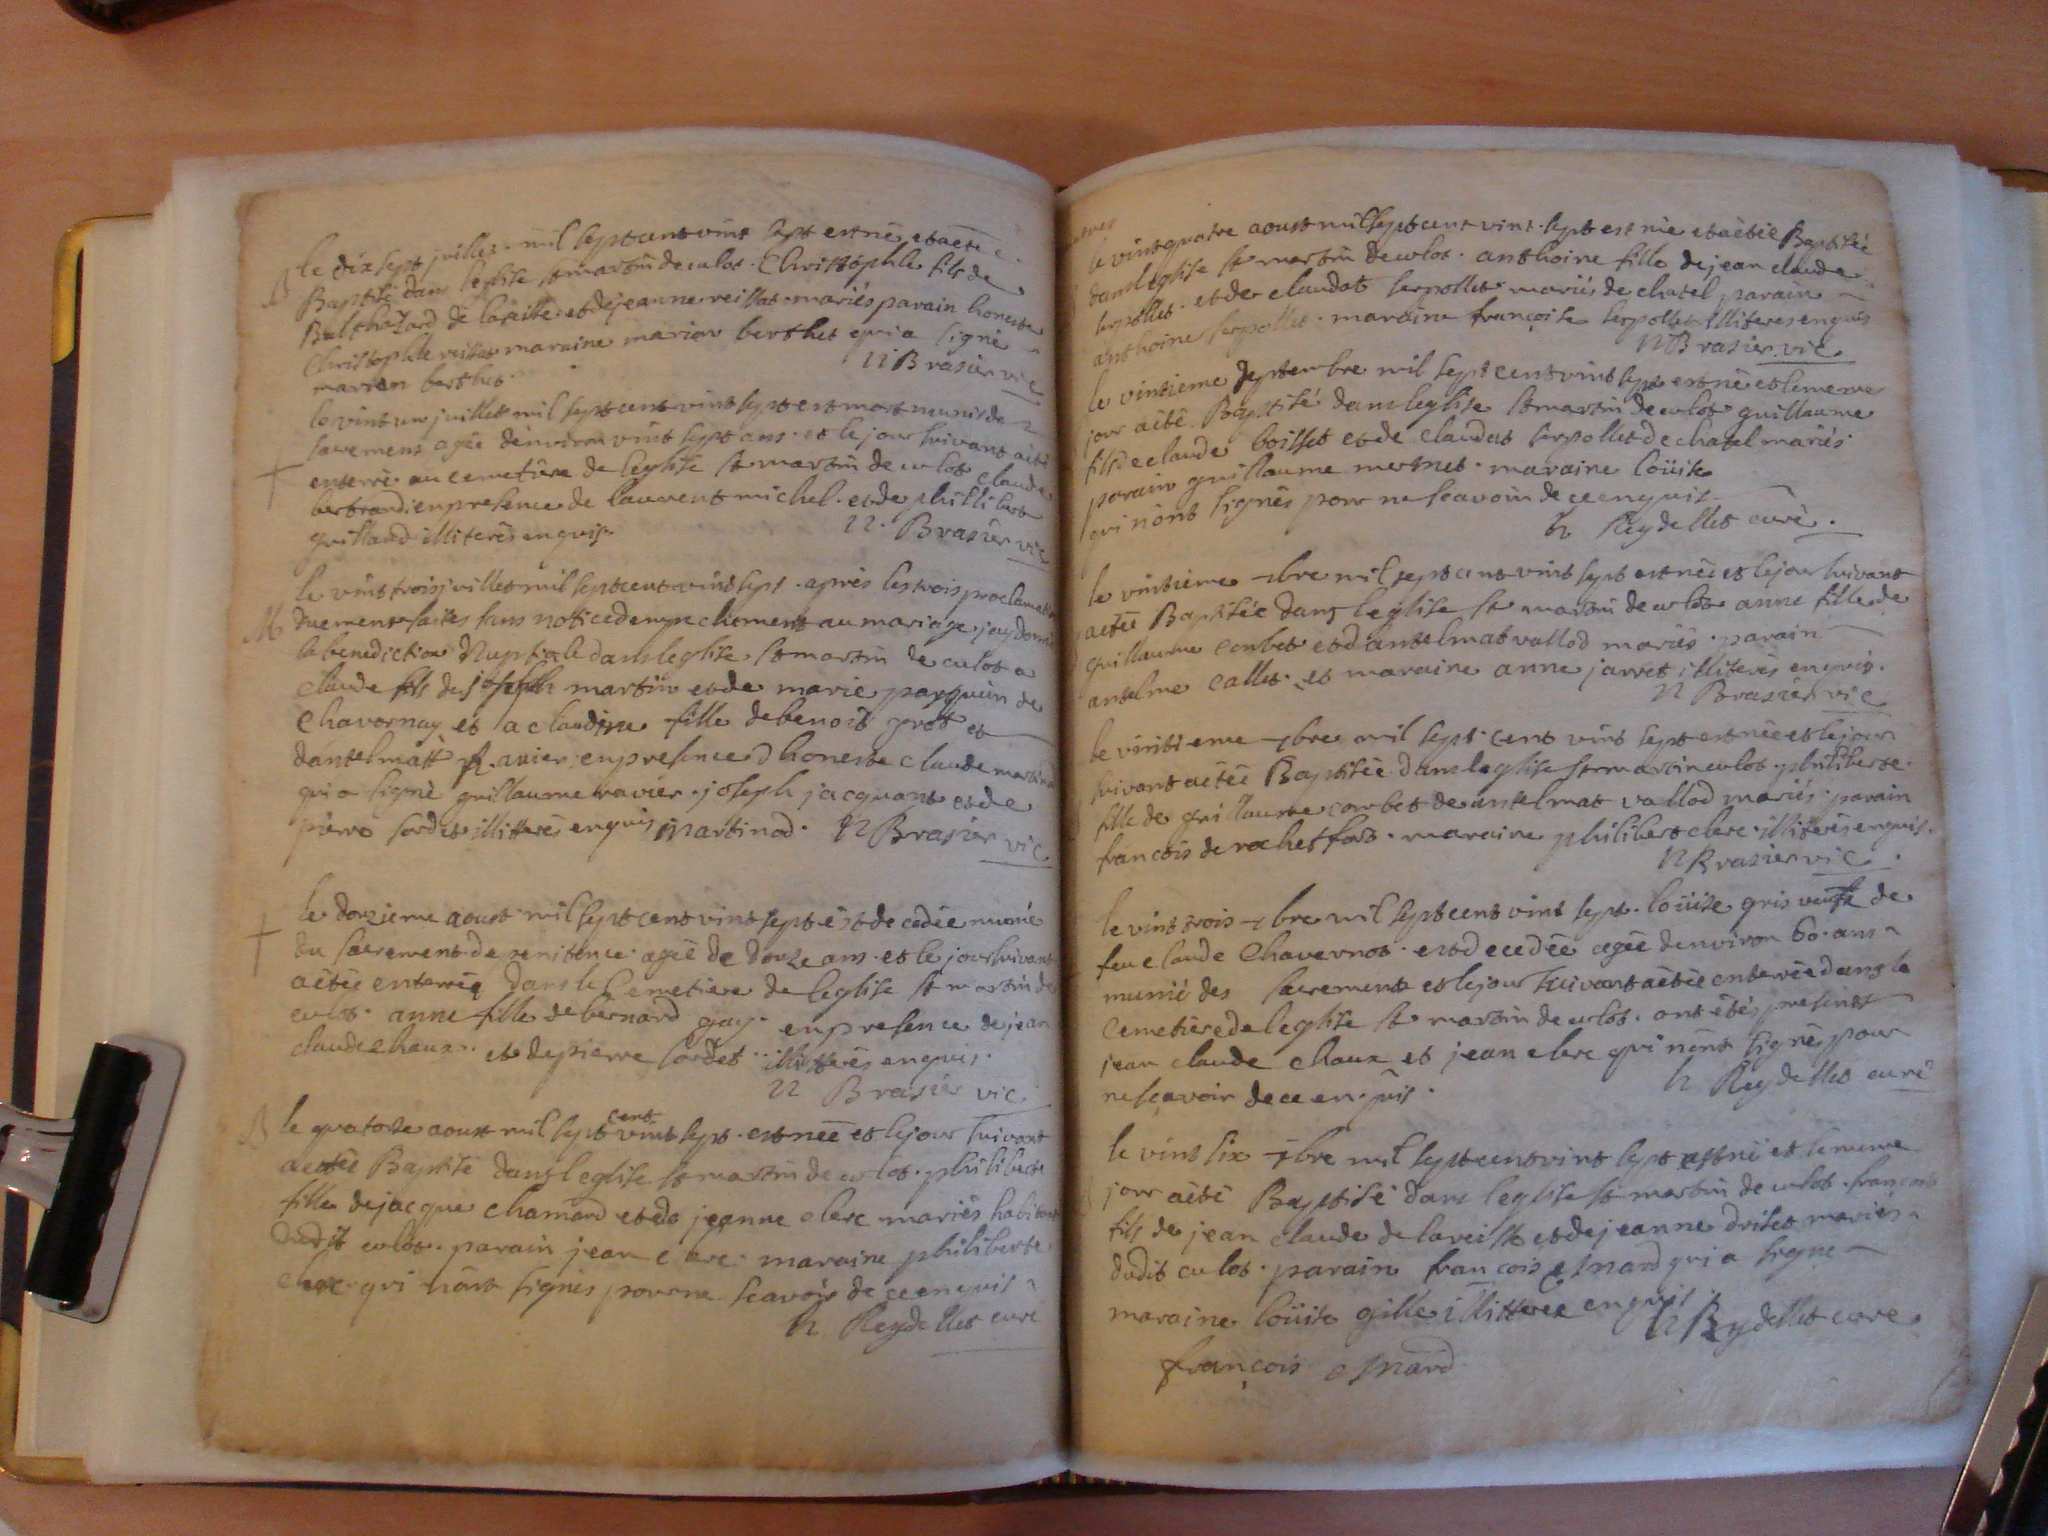 B le dix sept juillet mil sept cent vint sept est né et a été
Baptisé dans leglise st martin de culos Christophle fils de
Balthazard de laraisse et de jeanne reillat mariés parain honeste
Christophle reillat maraine marion berthet qui a signé
marion berthet n Brasier vic
le vint un juillet mil sept cent vint sept est mort munis de
sacremens agée denviron vint sept ans et le jour suivant a été
enterré au cemetiere de leglise st martin de culos claude
bertrand en presence de laurent michel et de philibert
guilland illiterés enquis n Brasier vic
le vint trois juillet mil sept cent vint sept apres les trois proclamations
M duement faites sans notice dempechement au mariage jay donné
la benediction Nuptiale dans leglise st martin de culos a
claude fils de joseph martin et de marie pasquin de
Chavornay et a claudine fille de benoit grot et
dantelmatt Ravier en presence dhoneste claude martinod
qui a signé guillaume ravier joseph jacquant et de
pierre sordet illitterés enquis martinod n Brasier vic
le douzieme aoust mil sept cent vint sept est decedée munie
du sacrement de penitence agée de douze ans et le jour suivant
a étée enterrée dans le Cemetiere de leglise st martin de
culos anne fille de bernard gay en presence de jean
claude chaux et de pierre sordet illitterés enquis
n Brasier vic
B le quatorze aoust mil sept cent vint sept est née et le jour suivant
a etée Baptisé dans leglise st martin de culos philiberte
fille de jacque chamard et de jeanne clerc mariés habitans
dudit culos parain jean clerc maraine philiberte
clerc qui nont signés pour ne scavoir de ce enquis
h Reydellet curé
le vint quatre aoust mil sept cent vint sept est née et a étée Baptisée
dans leglise st martin de culos anthoine fille de jean claude
serpollet et de claudat serpollet mariés de chatel parain
anthoine serpollet maraine françoise serpollet illiteres enquis
n Brasier vic
le vintieme septembre mil sept cent vint sept est né et le meme
jour a été Baptisé dans leglise st martin de culos guillaume
fils de claude boisset et de claudat serpollet de chatel mariés
parain guillaume mermet maraine loüise
qui nont signés pour ne scavoir de ce enquis
h Reydellet curé
le vintieme 7bre mil sept cent vint sept est née et le jour suivant
a étée Baptisée dans leglise st martin de culos anne fille de
guillaume combet et dantelmat vallod mariés parain
antelme callet et maraine anne jarret illiterés enquis
n Brasier vic
le vintieme 7bre mil sept cent vint sept est née et le jour
suivant a étée Baptisée dans leglise st martin culos philiberte
fille de guillaume combet de antelmat vallod mariés parain
francois de rochetfort maraine philibert clerc illiterés enquis
n Brasier vic
le vint trois 7bre mil sept cent vint sept loüise gris veufe de
feu claude Chavernot est decedée agée denviron 60 ans
munie des sacrements et le jour suivant a étée enterrée dans le
Cemetiere de leglise st martin de culos ont étés presents
jean claude chaux et jean clerc qui nont signés pour
ne scavoir de ce enquis h Reydellet curé
le vint six 7bre mil sept cent vint sept est né et le meme
jour a été Baptisé dans leglise st martin de culos francois
fils de jean claude de lareisse et de jeanne drilet mariés
dudit culos parain francois esnard qui a signe
maraine loüise gille illitterée enquis h Reydellet cure
françois esnard